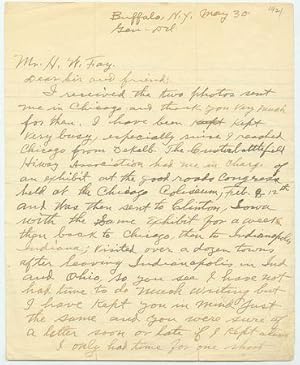 Buffalo, N.Y. May 30 1921
Gen-Del
Mr. H. W. Fay.
Dear Sir and friend:
I received the two photos sent
me in Chicago and thank you very much
for them. I have been kept
very busy, especially since I reached
Chicago from Dekalb. The
Hiway Association had me in charge of
an exhibit at the good roads Congress
held at the Chicago Coliseum, Feb. 12th
and was then sent to Clinton, Iowa
with the same exhibit for a week
then back to Chicago then to Indianapolis
Indiana; visited over a dozen towns
after leaving Indianapolis in Ind
and Ohio, so you see I have not
had time to do much writing but
I have kept you in mind just
the same and you were sure of
a letter soon or late if I kept alive
I only had time for one short